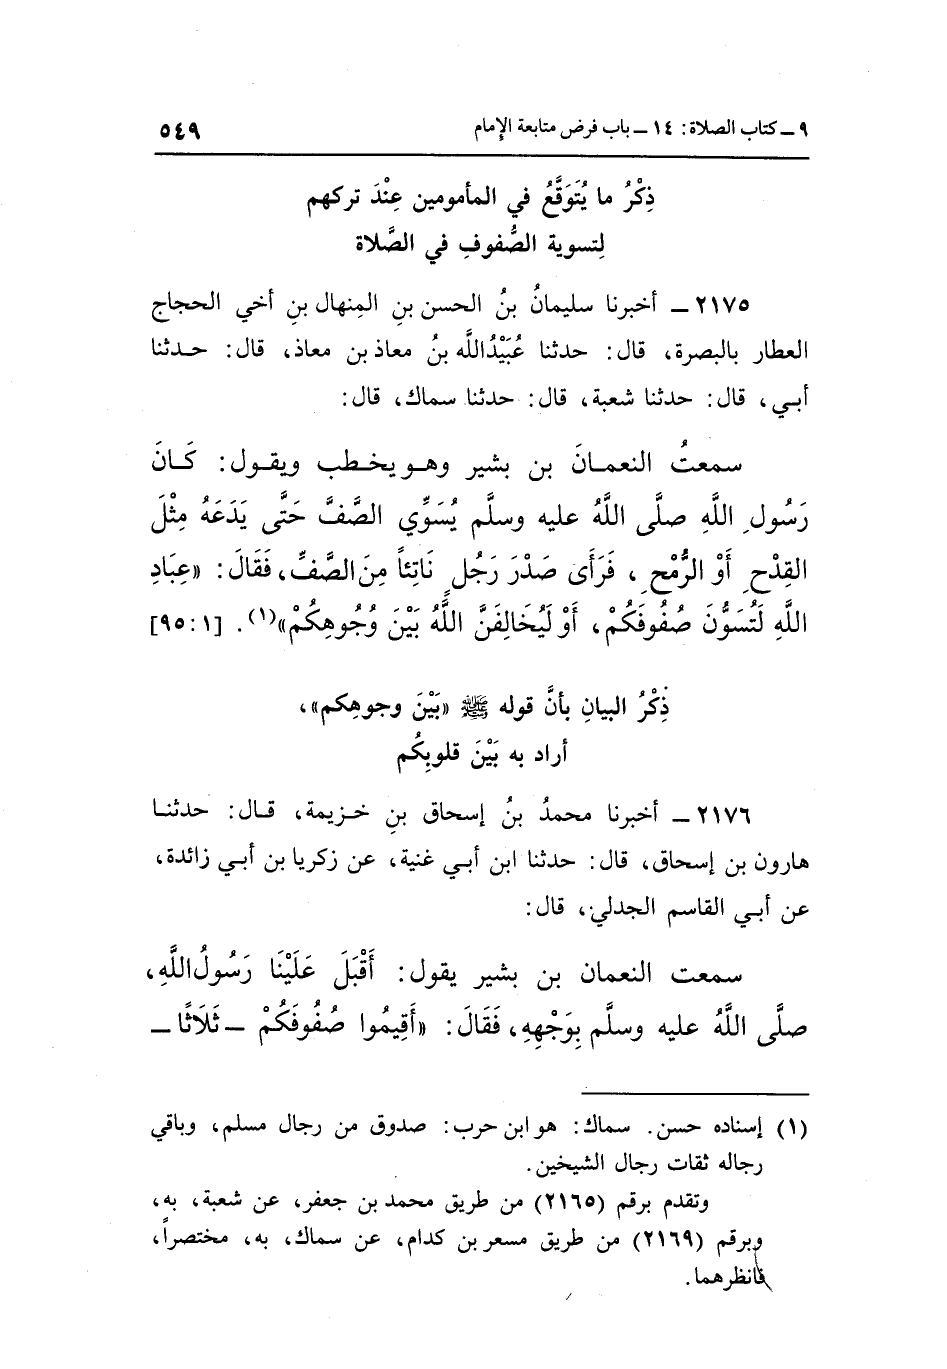 ٩ ــ كتاب الصلاة: ١٤ ــ باب فرض متابعة الإمام ٥٤٩
ذِكْرُ ما يُتَوَقَّعُ في المأمومين عِنْدَ تركهم
لِتسوية الصُّفوفِ في الصَّلاة
٢١٧٥ ــ أخبرنا سليمانُ بنُ الحسن بنِ المِنهال بنِ أخي الحجاج
العطار بالبصرة، قال: حدثنا عُبَيْدُاللَّه بنُ معاذ بن معاذ، قال: حدثنا
أبي، قال: حدثنا شعبة، قال: حدثنا سماك، قال:
سمعتُ النعمانَ بن بشير وهو يخطب ويقول: كَانَ
رَسُولِ اللَّهِ صلَّى اللَّهُ عليه وسلَّم يُسَوِّي الصَّفَّ حَتَّى يَدَعَهُ مِثْلَ
القِدْحِ أَوْ الرُّمْحِ، فَرَأَى صَدْرَ رَجُلٍ نَاتِئاً مِنَ الصَّفِّ، فَقَالَ: «عِبَادِ
اللَّهِ لَتُسَوُّنَ صُفُوفَكُمْ، أَوْ لَيُخَالِفَنَّ اللَّهُ بَيْنَ وُجُوهِكُمْ»(١). [١: ٩٥]
ذِكْرُ البيانِ بأنَّ قوله ﷺ «بَيْنَ وجوهِكم»،
أراد به بَيْنَ قلوبِكُم
٢١٧٦ ــ أخبرنا محمدُ بنُ إسحاق بنِ خزيمة، قال: حدثنا
هارون بن إسحاق، قال: حدثنا ابن أبي غنية، عن زكريا بن أبي زائدة،
عن أبي القاسم الجدلي، قال:
سمعت النعمان بن بشير يقول: أَقْبَلَ عَلَيْنَا رَسُولُ اللَّهِ،
صلَّى اللَّهُ عليه وسلَّم بِوَجْهِهِ، فَقَالَ: «أَقِيمُوا صُفُوفَكُمْ ــ ثَلَاثًا ــ
(١) إسناده حسن. سماك: هو ابن حرب: صدوق من رجال مسلم، وباقي
رجاله ثقات رجال الشيخين.
وتقدم برقم (٢١٦٥) من طريق محمد بن جعفر، عن شعبة، به،
وبرقم (٢١٦٩) من طريق مسعر بن كدام، عن سماك، به، مختصراً،
فانظرهما.